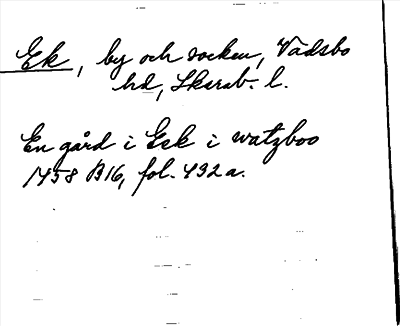 Ek, by och socken, Vadsbo
hd, Skarab. l.
En gård i Eek i watzboo
1458 B16, fol. 492a.